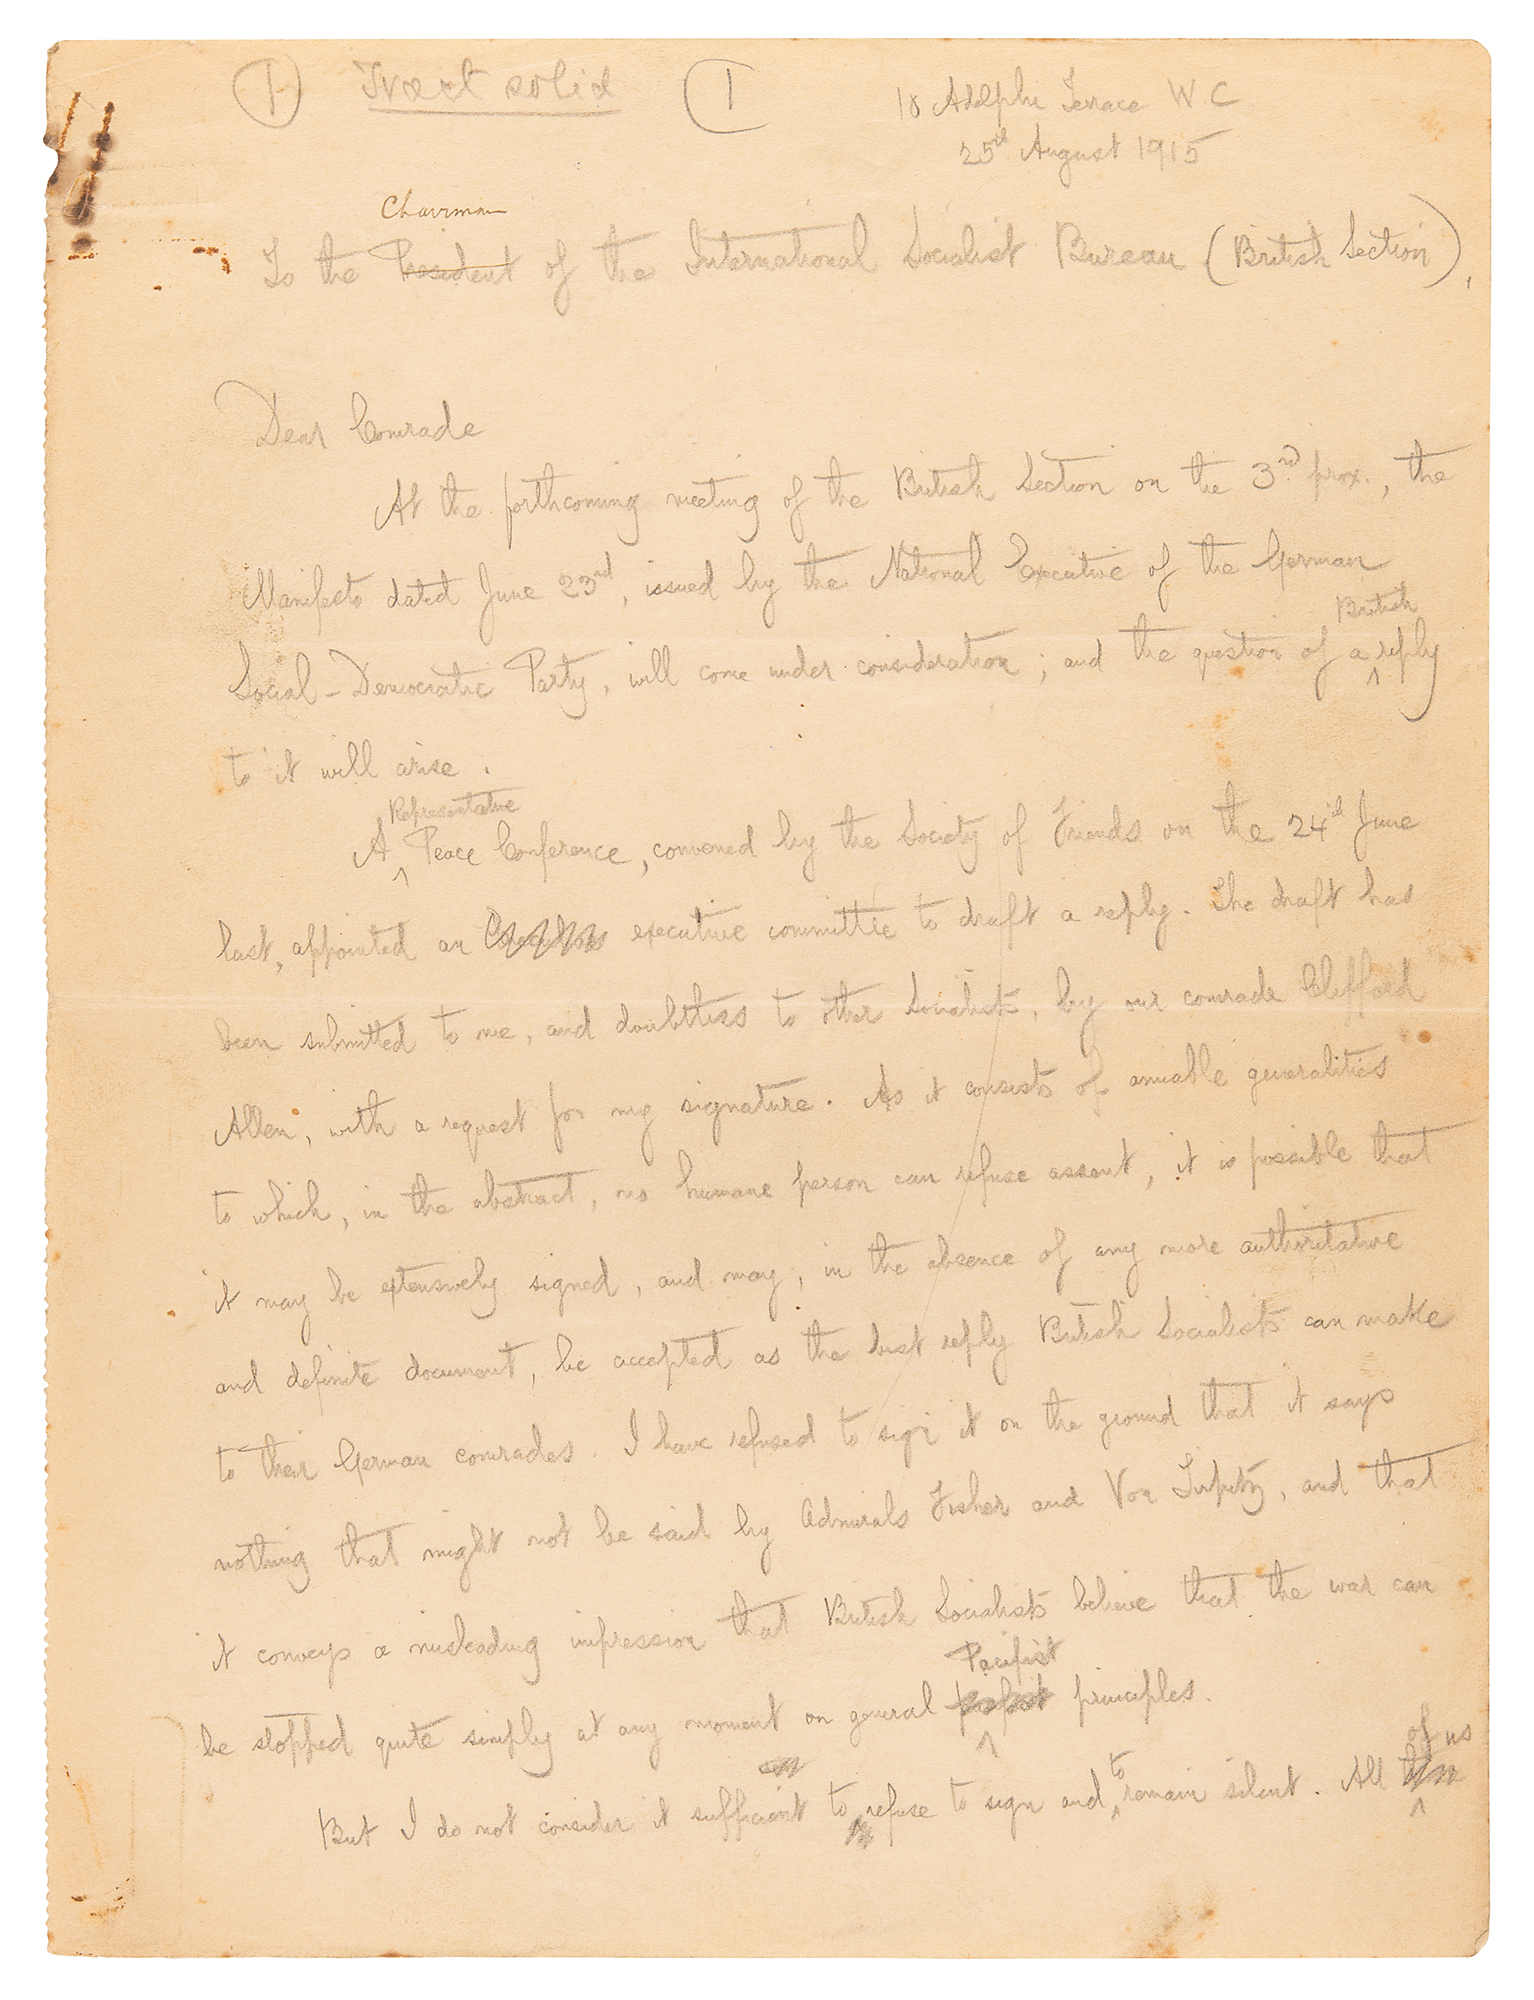 1 Tract solid 1
10 Adelphi Terrace W C
25th August 1915
Chairman
To the President of the International Socialist Bureau (British Section),
Dear Comrade
At the forthcoming meeting of the British Section on the 3rd prox., the
Manifesto dated June 23rd, issued by the National Executive of the German
British
Social-Democratic Party, will come under consideration; and the question of a ^ reply
to it will arise.
Representative
A ^ Peace Conference, convened by the Society of Friends on the 24th June
last, appointed an executive committee to draft a reply. The draft has
been submitted to me, and doubtless to other Socialists, by our comrade Clifford
Allen, with a request for my signature. As it consists of amiable generalities
to which, in the abstract, no humane person can refuse assent, it is possible that
it may be extensively signed, and may, in the absence of any more authoritative
and definite document, be accepted as the best reply British Socialists can make
to their German comrades. I have refused to sign it on the ground that it says
nothing that might not be said by Admirals Fisher and Von Tirpitz, and that
it conveys a misleading impression that British Socialists believe that the war can
Pacifist
be stopped quite simply at any moment on general ^ principles.
to of us
But I do not consider it sufficient to refuse to sign and ^ remain silent. All ^